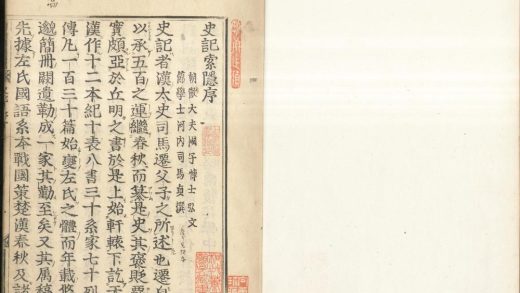 史記索隱序
朝散大夫國子博士弘文
館學士河内司馬貞撰
史記者漢太史司馬遷父子之所述也遷自
以承五百之運繼春秋而纂是史其褒貶覈
實頗亞於丘明之書於是上始軒轅下訖天
漢作十二本紀十表八書三十系家七十列
傳凡一百三十篇始變左氏之體而年載悠
邈簡冊闕遺勒成一家其勤至矣又其属稿
先據左氏國語系本戰國策楚漢春秋及諸